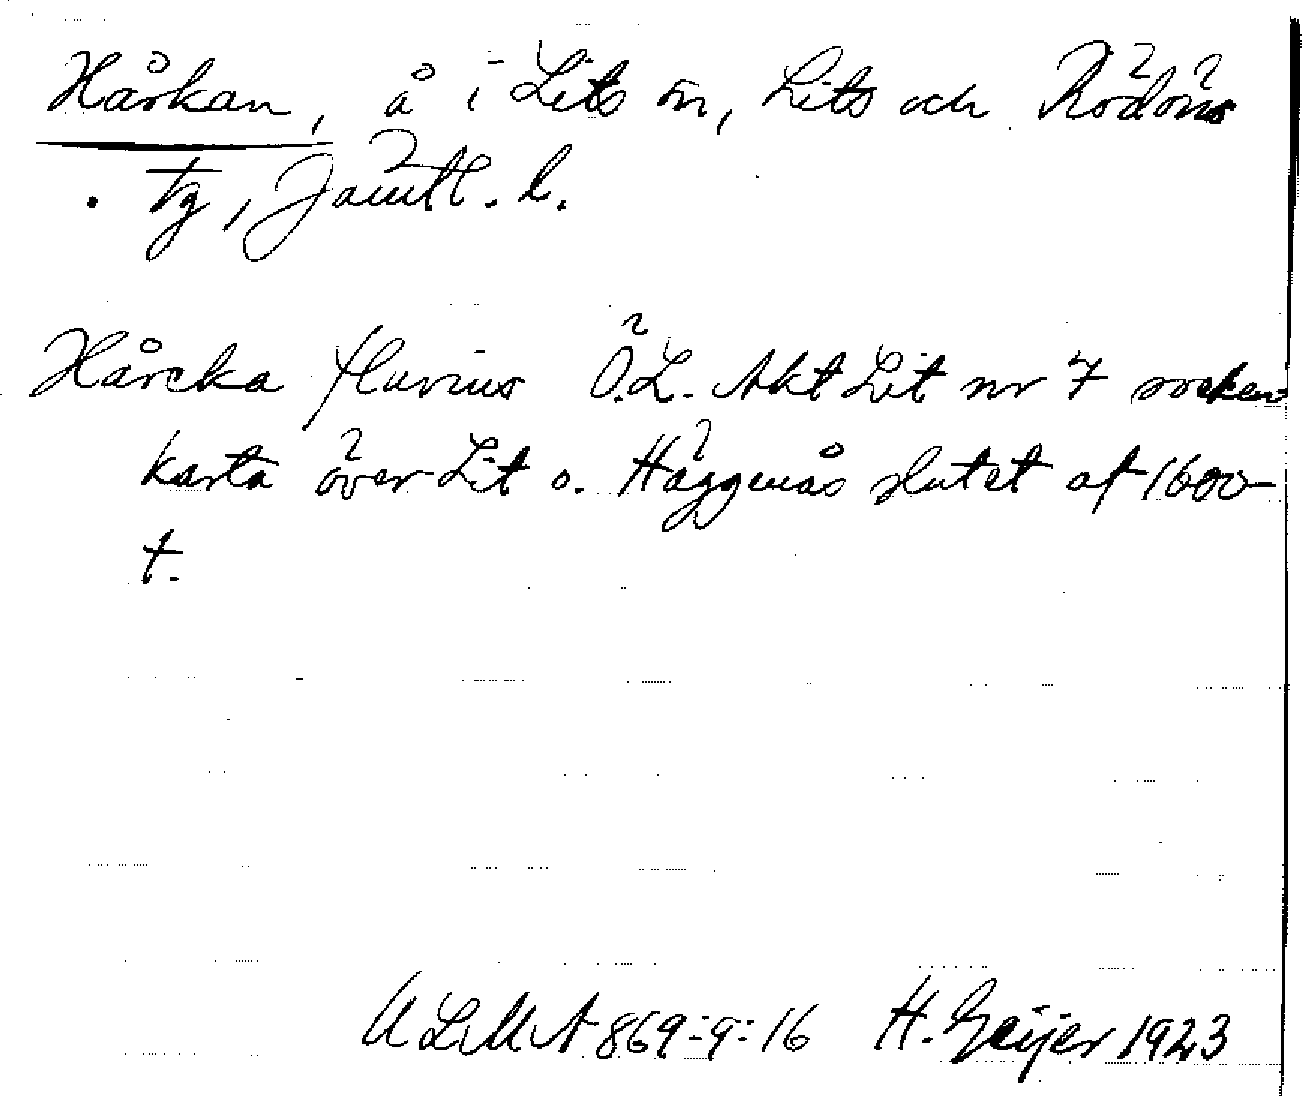 Hårkan, å i Lits sn, Lits och Rödöns
tg, Jämtl. l.
Hårcka fluvius Ö.L. Akt Lit nr 7 socken-
karta över Lit o. Häggenås slutet af 1600-
t.
ULMA 869:9:16 H. Geijer 1923